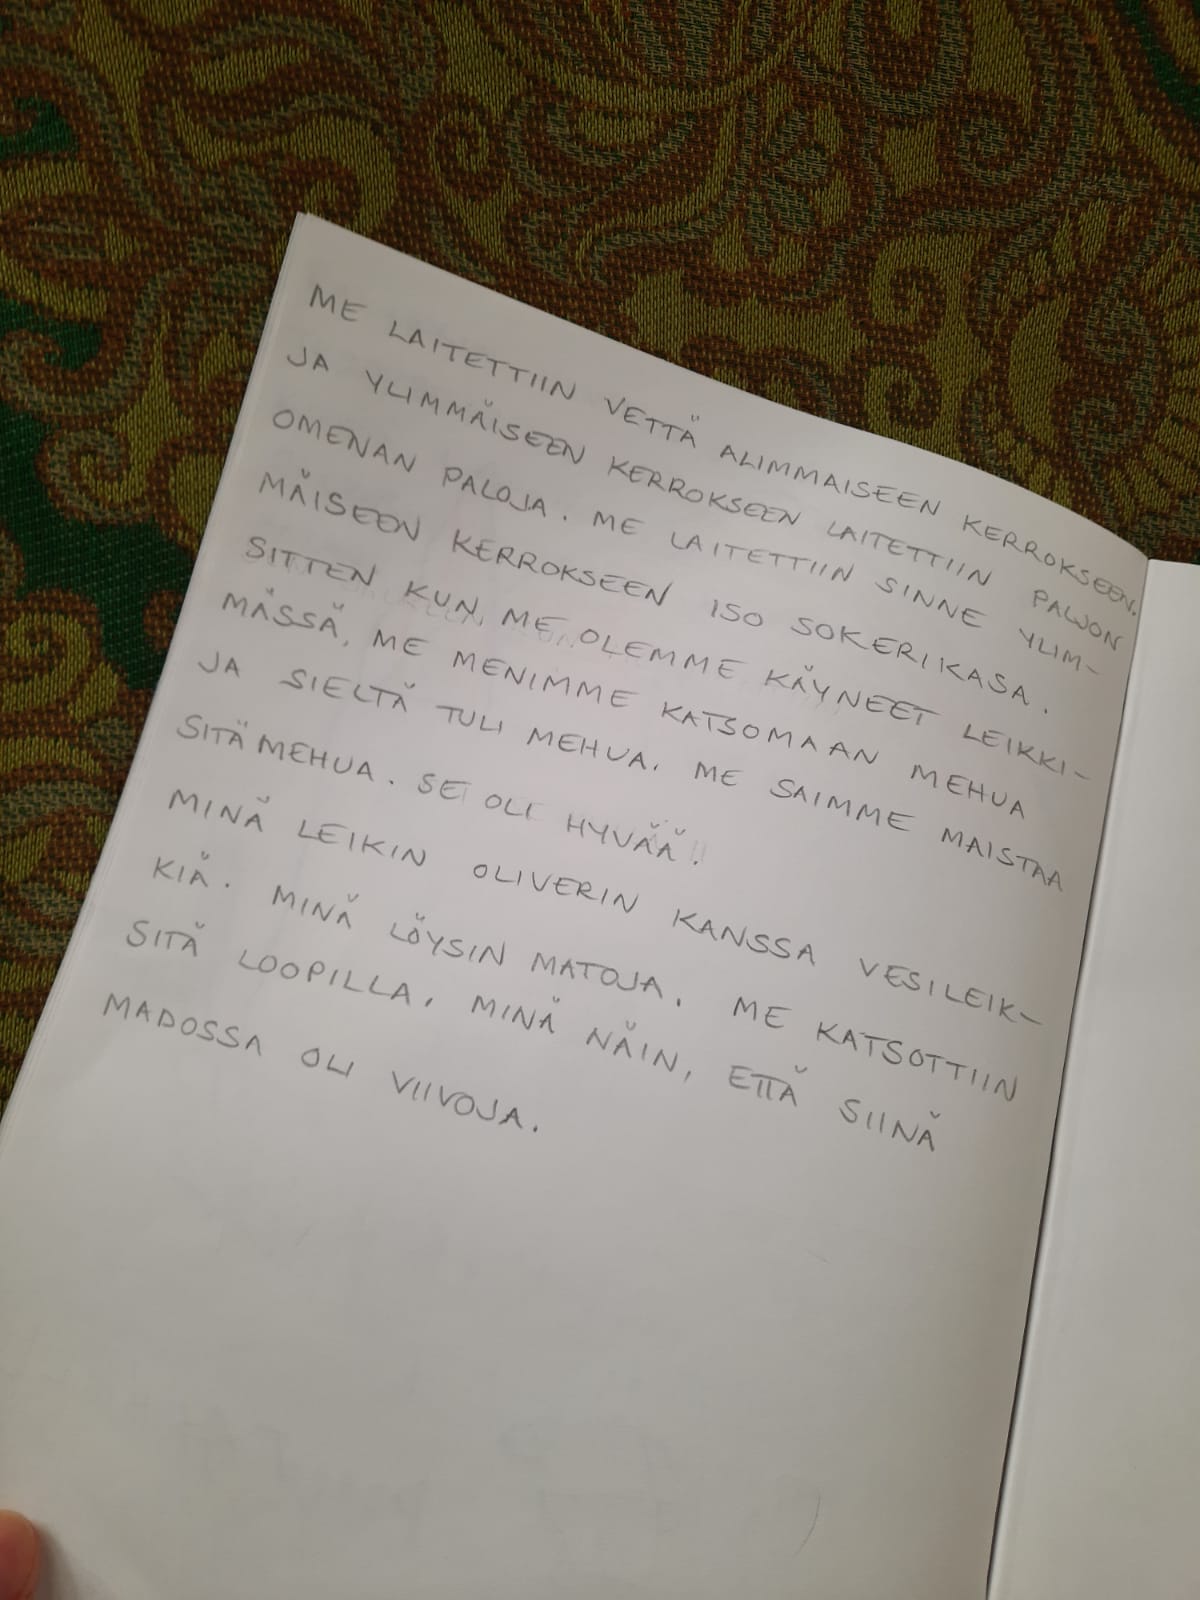 ME LAITETTIIN VETTÄ ALIMMAISEEN KERROKSEEN.
JA YLIMMÄISEEN KERROKSEEN LAITETTIIN PALJON
OMENAN PALOJA. ME LAITETTIIN SINNE YLIM-
MÄISEEN KERROKSEEN ISO SOKERIKASA.
SITTEN KUN, ME OLEMME KÄYNEET LEIKKI-
MÄSSÄ, ME MENIMME KATSOMAAN MEHUA
JA SIELTÄ TULI MEHUA. ME SAIMME MAISTAA
SITÄ MEHUA. SE OLI HYVÄÄ!
MINÄ LEIKIN OLIVERIN KANSSA VESILEIK-
KIÄ. MINÄ LÖYSIN MATOJA. ME KATSOTTIIN
SITÄ LOOPILLA. MINÄ NÄIN, ETTÄ SIINÄ
MADOSSA OLI VIIVOJA.